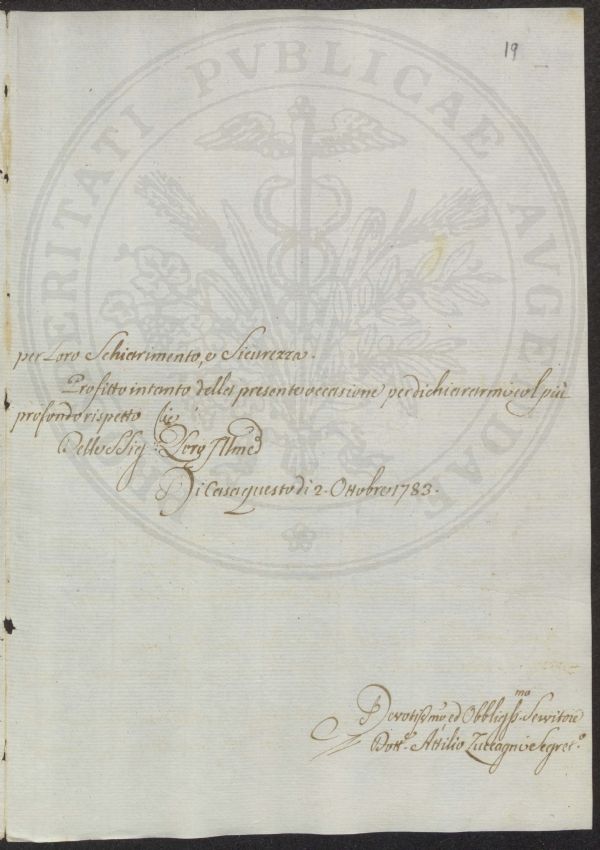 19
PROSPERITATI PVBLICAE AVGENDAE
per Loro Schiarimento, e Sicurezza.
Profitto intanto della presente occasione per dichiararmi col più
profondo rispetto
Delle SSig.rie Loro Illme
Di Casa questo dì 2. Ottobre 1783.
Devotissmo, ed Obbligssmo Servitore
Dott.e Attilio Zuccagni Segret.o